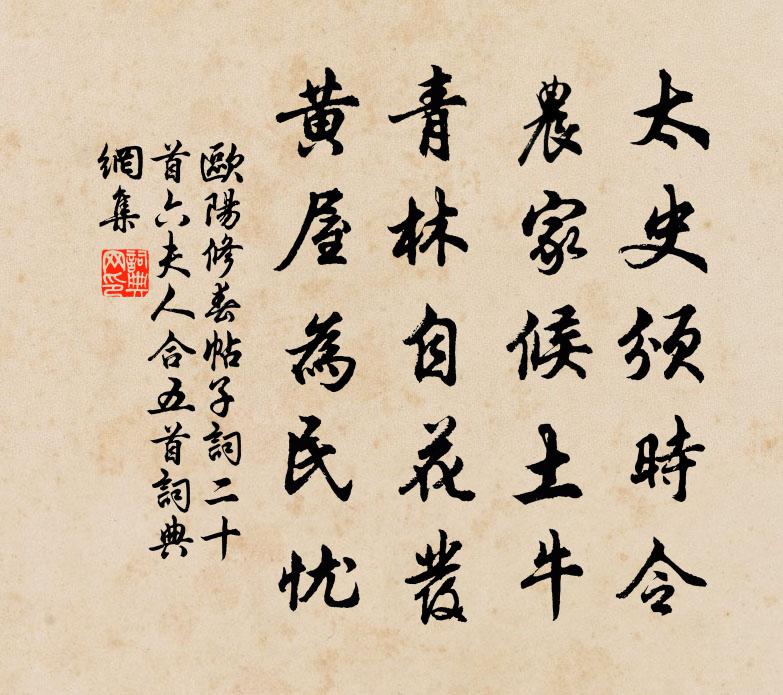 太史頒時令
農家候土牛
青林自花發
黃屋為民忧
歐陽修春帖子詞二十
首六夫人合五首詞典
網集
詞典網印